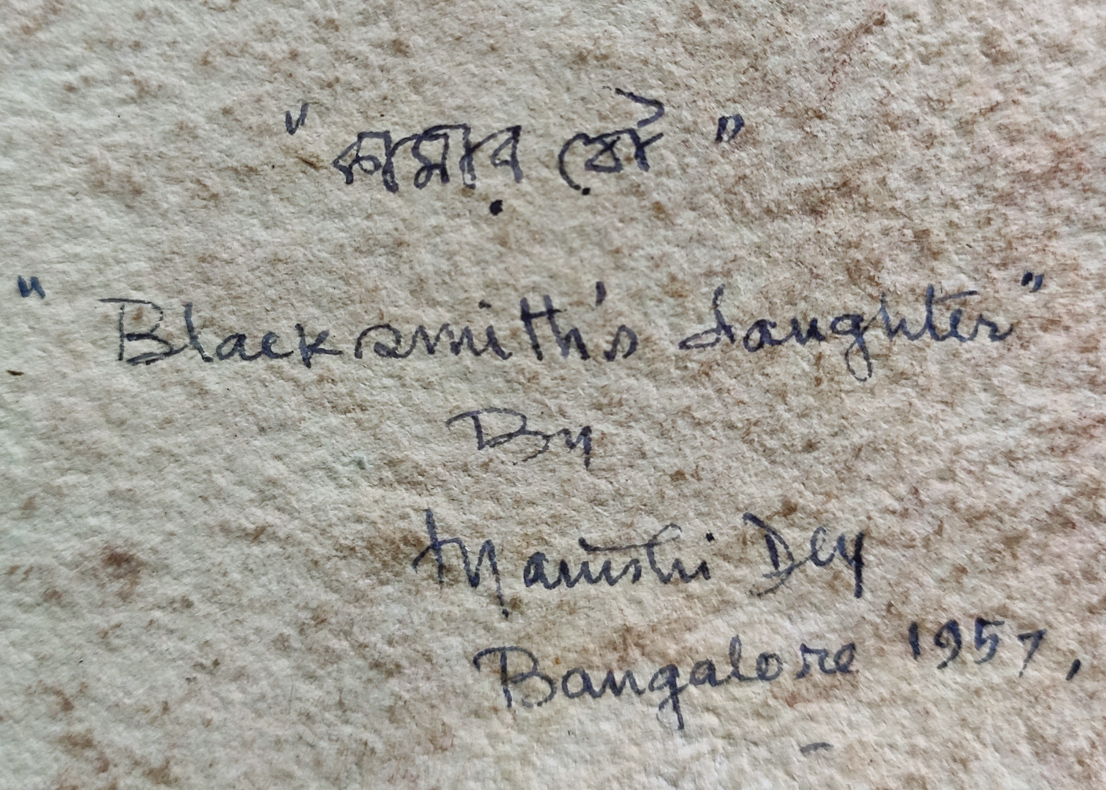 "কামার বৌ"
"Blacksmith's daughter"
By
Manishi Dey
Bangalore 1957,